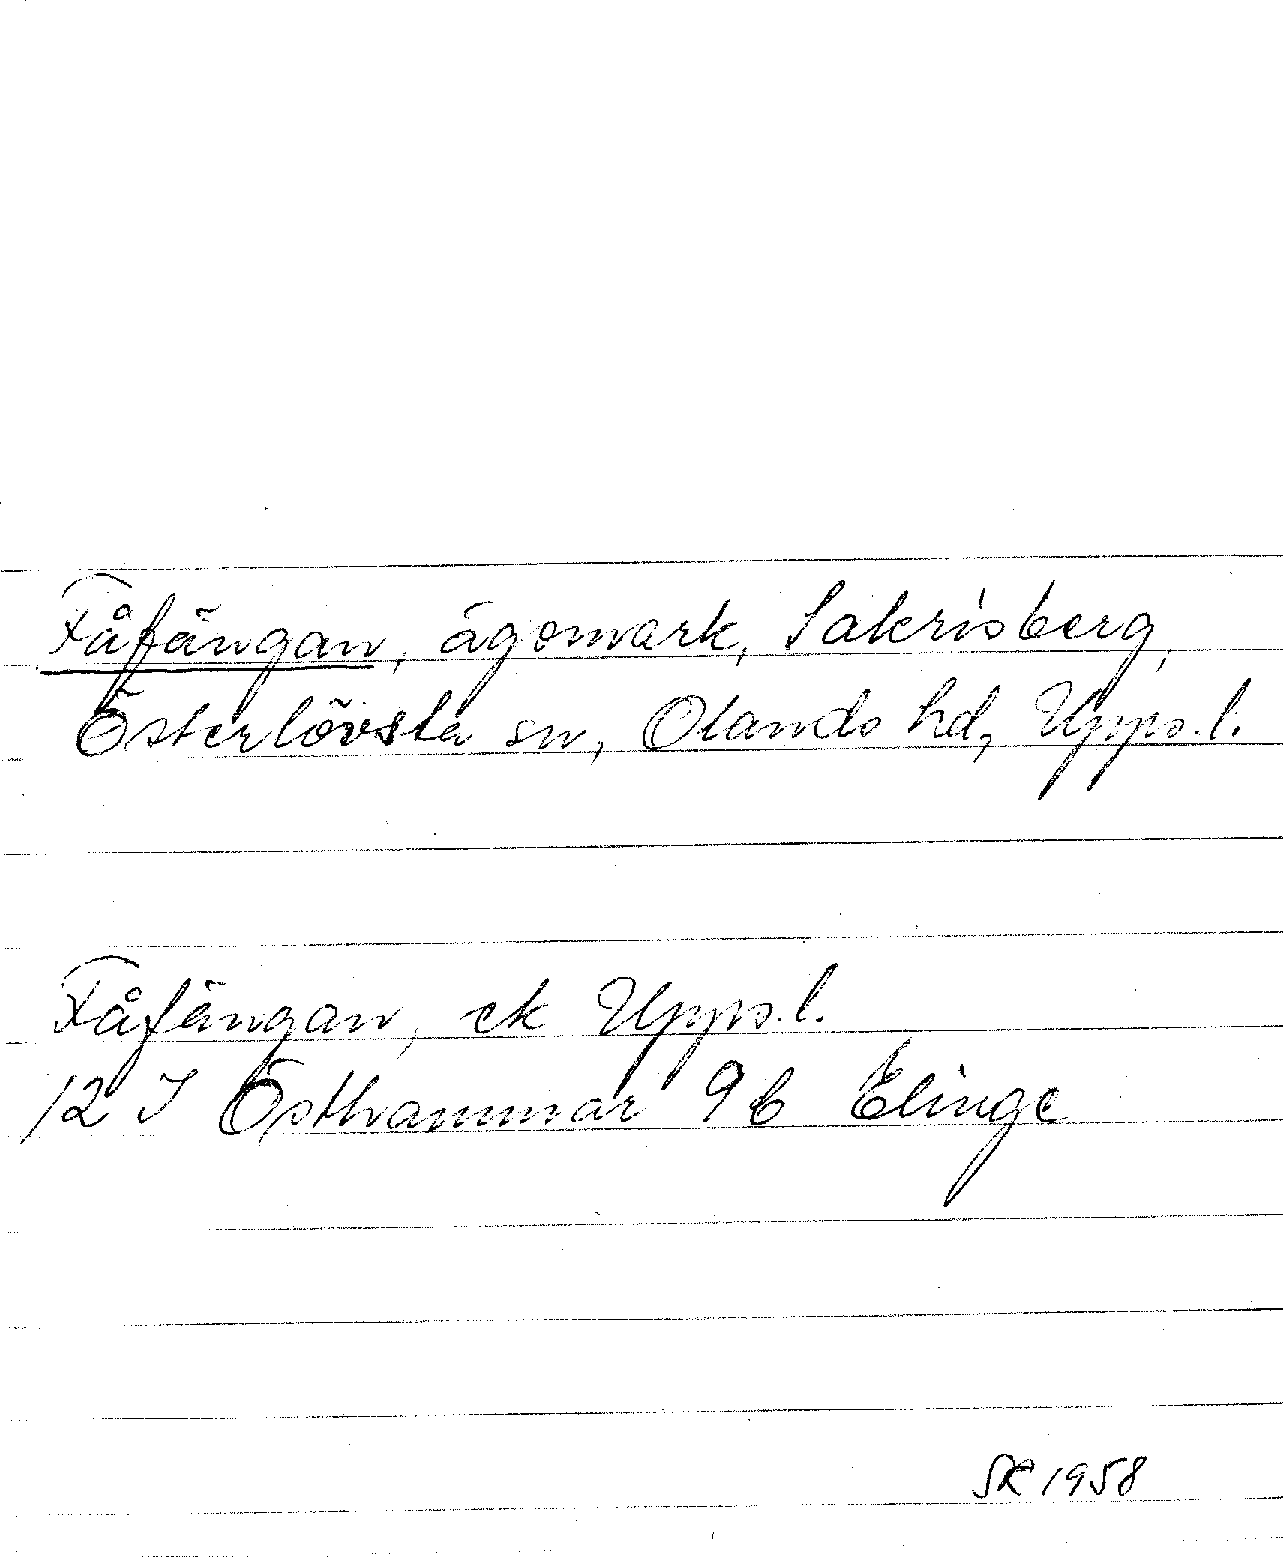 Fåfängan, ägomark, Sakrisberg,
Österlövsta sn, Olands hd, Upps.l.
Fåfängan, ek Upps.l.
12 I Östhammar 9b Elinge
SR 1958